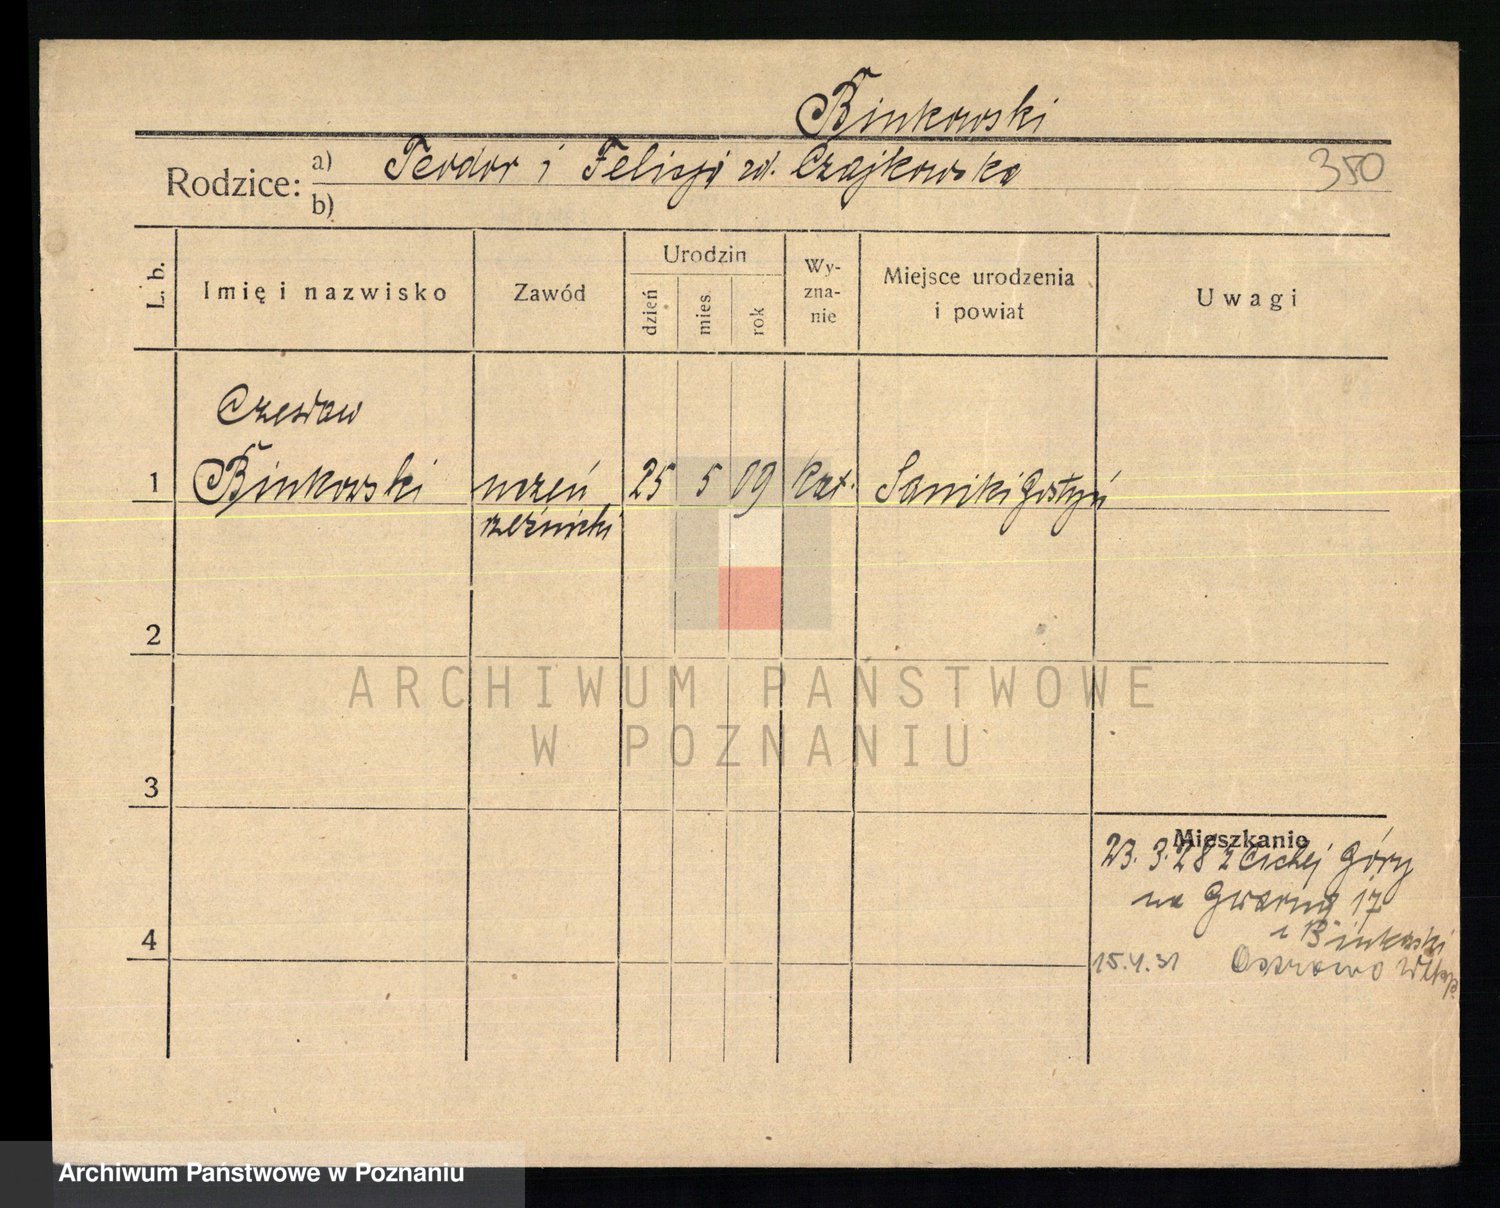 Binkowski
Rodzice: a) Teodor i Felicja zd. Czajkowska 350
b)
L. b. Imię i nazwisko Zawód Urodzin dzień mies. rok Wy-zna-nie Miejsce urodzenia i powiat Uwagi
Czesław
1 Binkowski uczeń 25 5 09 kat. Saniki Gostyń
rzeźnicki
2
ARCHIWUM PAŃSTWOWE
W POZNANIU
3
Mieszkanie
23. 3. 28 z Cichej Góry
na Gwarną 17
4 Binkowski
15.4.31 Ostrowo Wlkp.
Archiwum Państwowe w Poznaniu